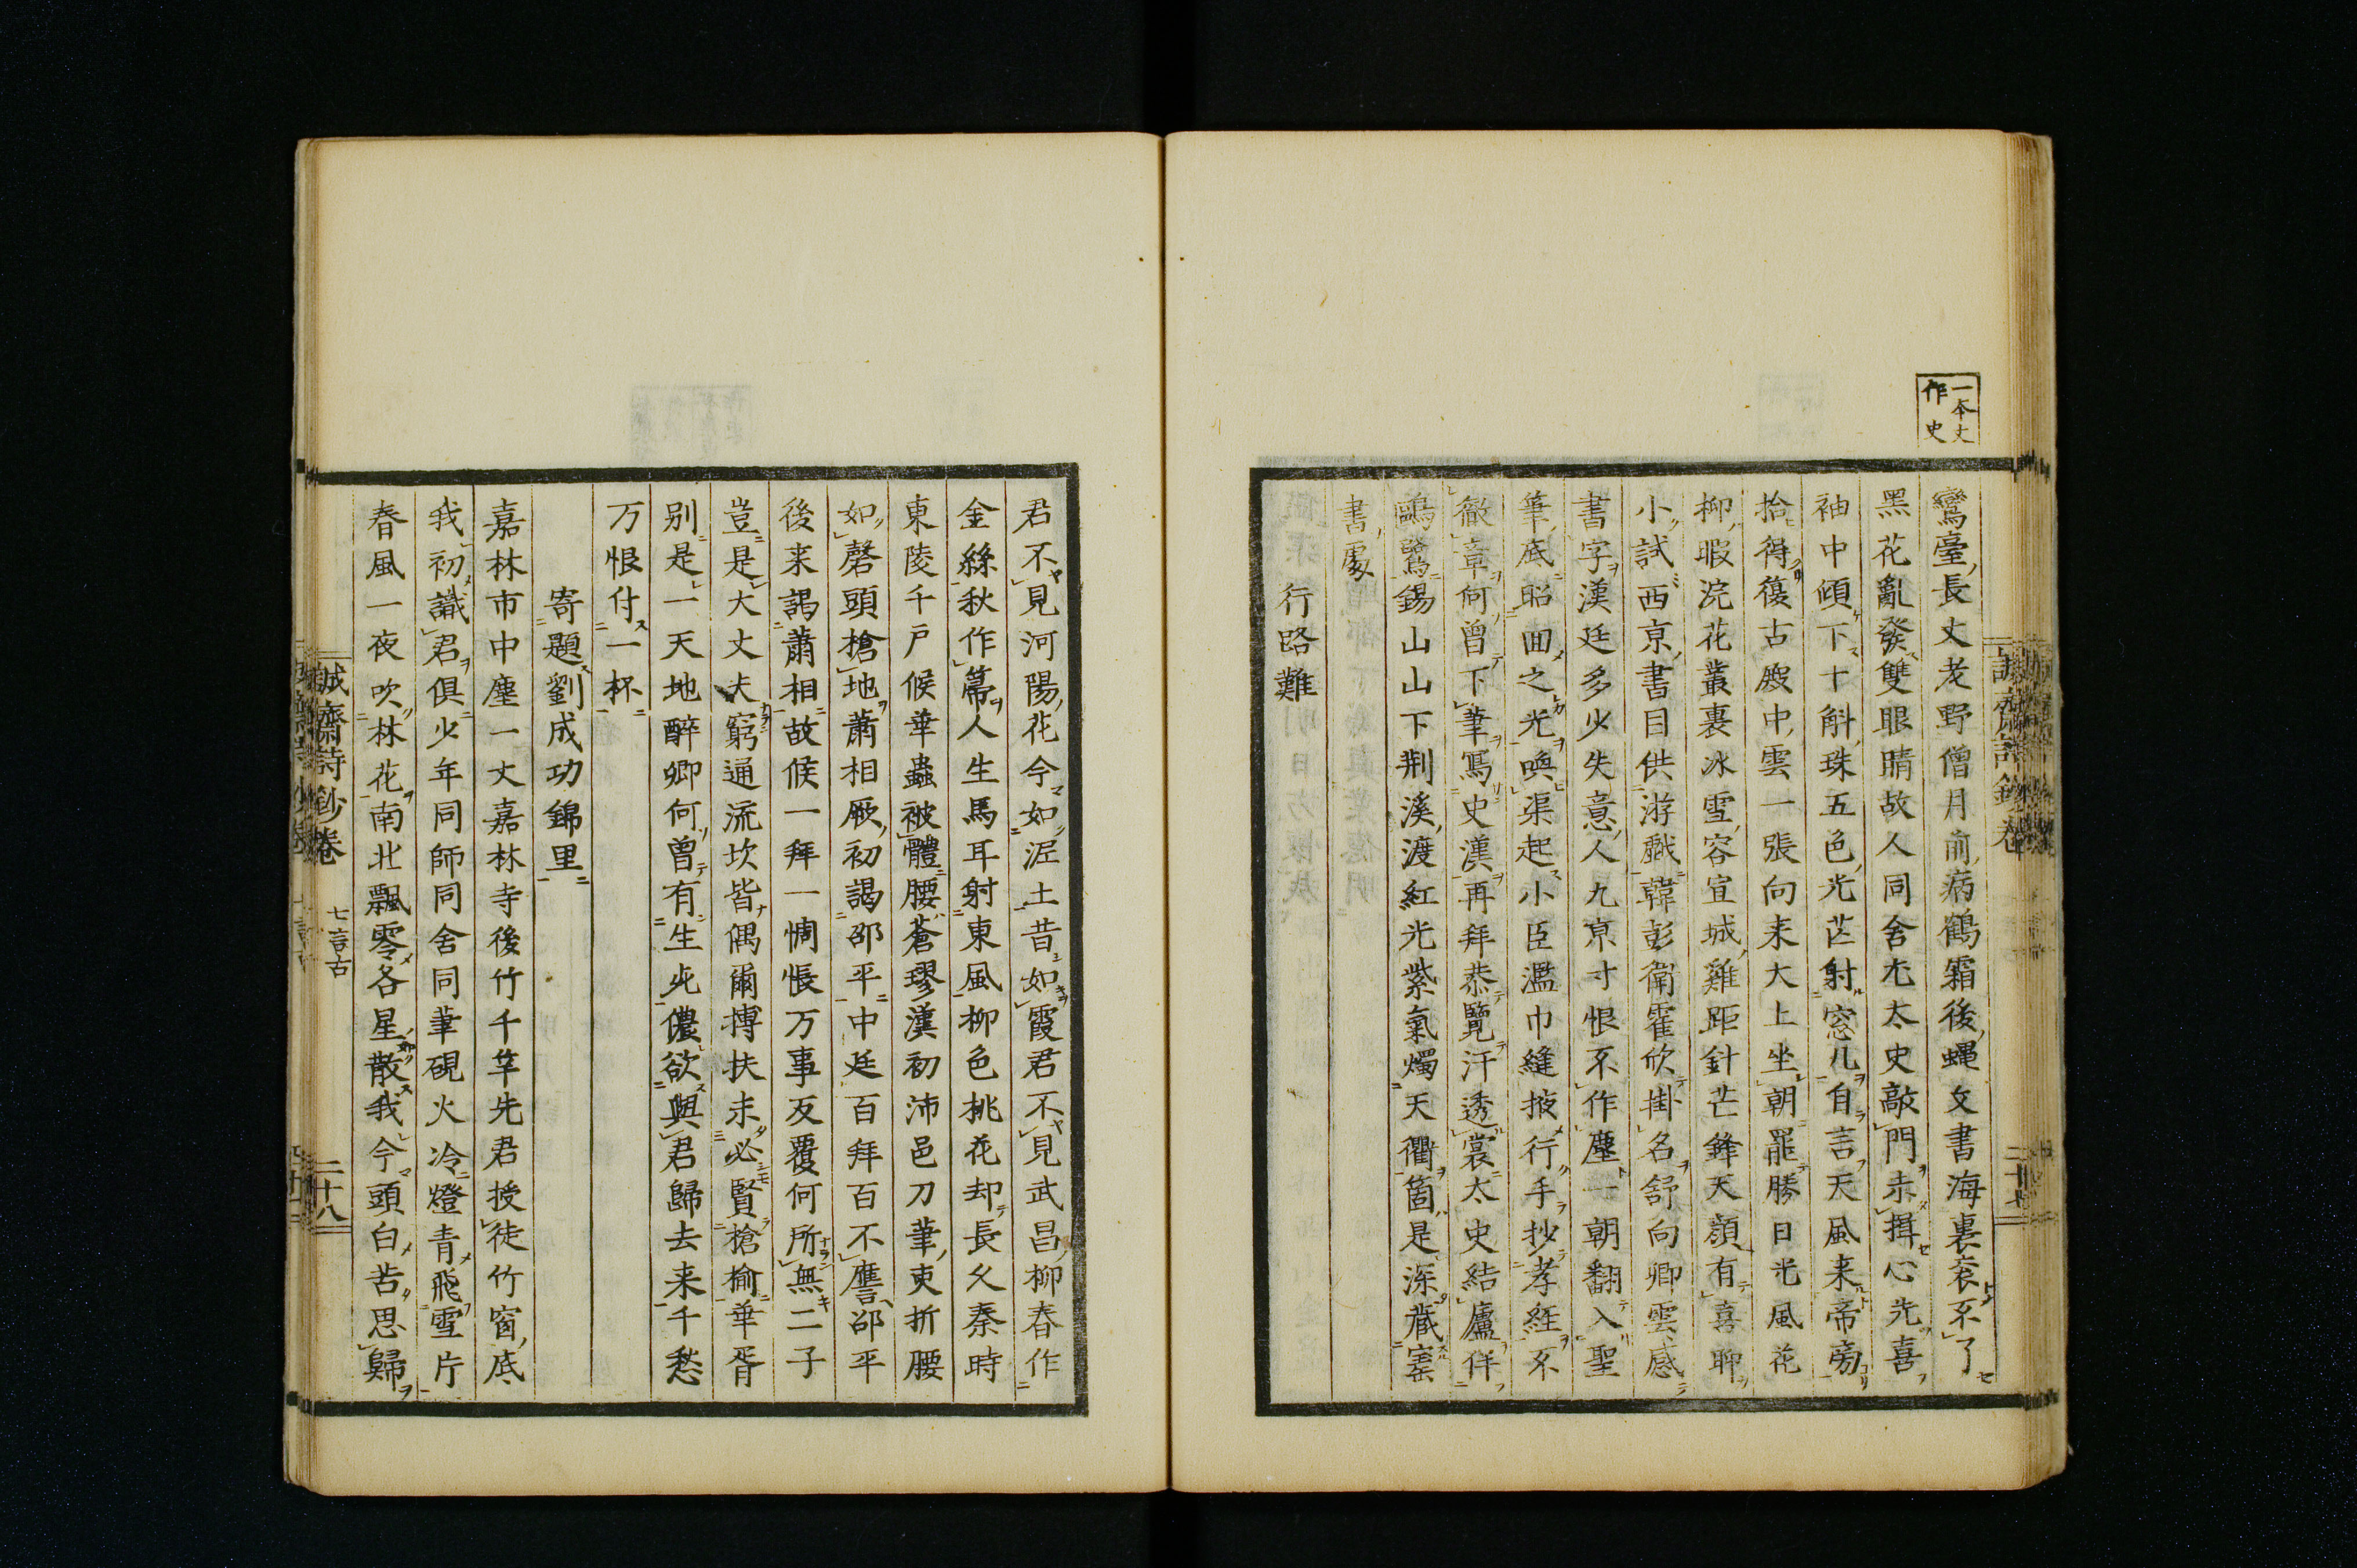 一本丈
作史
鸞臺長丈老野僧月前病鶴霜後蝿文書海裏衮不了
黒花亂發雙眼睛故人同舍尤太史敲門未揖心先喜
袖中傾下十斛珠五色光芒射窓几自言天風来帝旁
拾得復古殿中雲一張向来大上坐朝罷勝日光風花
柳暇浣花叢裏冰雪容宣城雞距針芒鋒天顔有喜聊
小試西京書目供游戲韓彭衛霍欣掛名舒向卿雲感
書字漢廷多少失意人九京寸恨不作塵一朝翻入聖
筆底昭回之光喚渠起小臣濫巾縫掖行手抄孝経不
徹章何曽下筆寫史漢再拜恭覽汗透裳太史結廬伴
鷗鷺錫山山下荆溪渡紅光紫氣燭天衢箇是深藏宻
書處
行路難
誠齋詩鈔卷
二十七
君不見河陽花今如泥土昔如霞君不見武昌柳春作
金絲秋作帚人生馬耳射東風柳色桃花却長久秦時
東陵千戸候華蟲被體腰蒼璆漢初沛邑刀筆吏折腰
如磬頭槍地蕭相厥初謁邵平中廷百拜百不譍邵平
後来謁蕭相故候一拜一惆悵万事反覆何所無二子
豈是大丈夫窮通流坎皆偶爾搏扶未必賢槍榆華胥
别是一天地醉卿何曽有生死儂欲與君歸去来千愁
万恨付一杯
寄題劉成功錦里
嘉林市中塵一丈嘉林寺後竹千竿先君授徒竹窗底
我初識君俱少年同師同舍同筆硯火冷燈青飛雪片
春風一夜吹林花南北飄零各星散我今頭白苦思歸
誠齋詩鈔卷
七言古
二十八